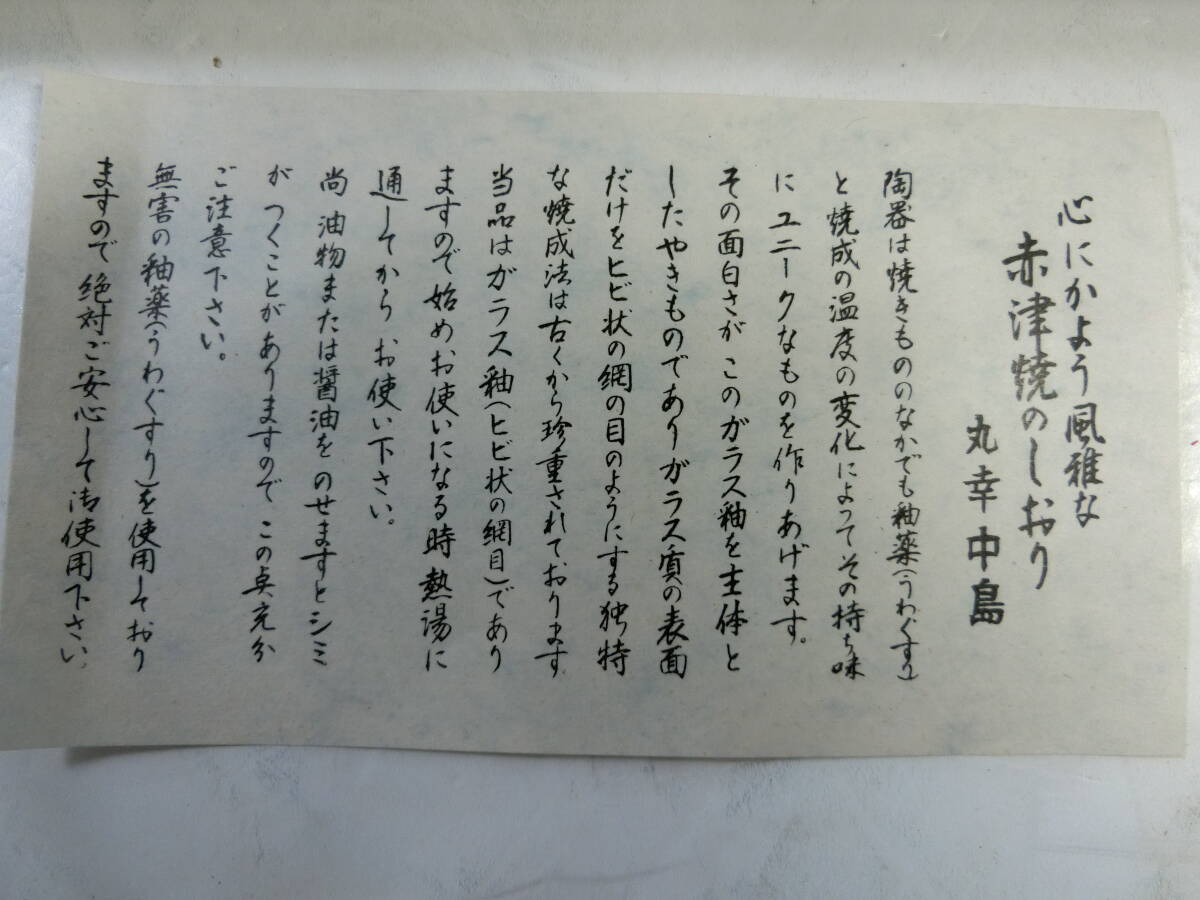 心にかよう風雅な
赤津焼のしおり
丸幸中島
陶器は焼きもののなかでも釉薬(うわぐすり)
と焼成の温度の変化によってその持ち味
にユニークなものを作りあげます。
その面白さがこのガラス釉を主体と
したやきものでありガラス質の表面
だけをヒビ状の網の目のようにする独特
な焼成法は古くから珍重されております
当品はガラス釉(ヒビ状の網目)であり
ますので始めお使いになる時熱湯に
通してからお使い下さい。
尚油物または醤油をのせますとシミ
がつくことがありますのでこの点充分
ご注意下さい。
無害の釉薬(うわぐすり)を使用しており
ますので絶対ご安心して御使用下さい